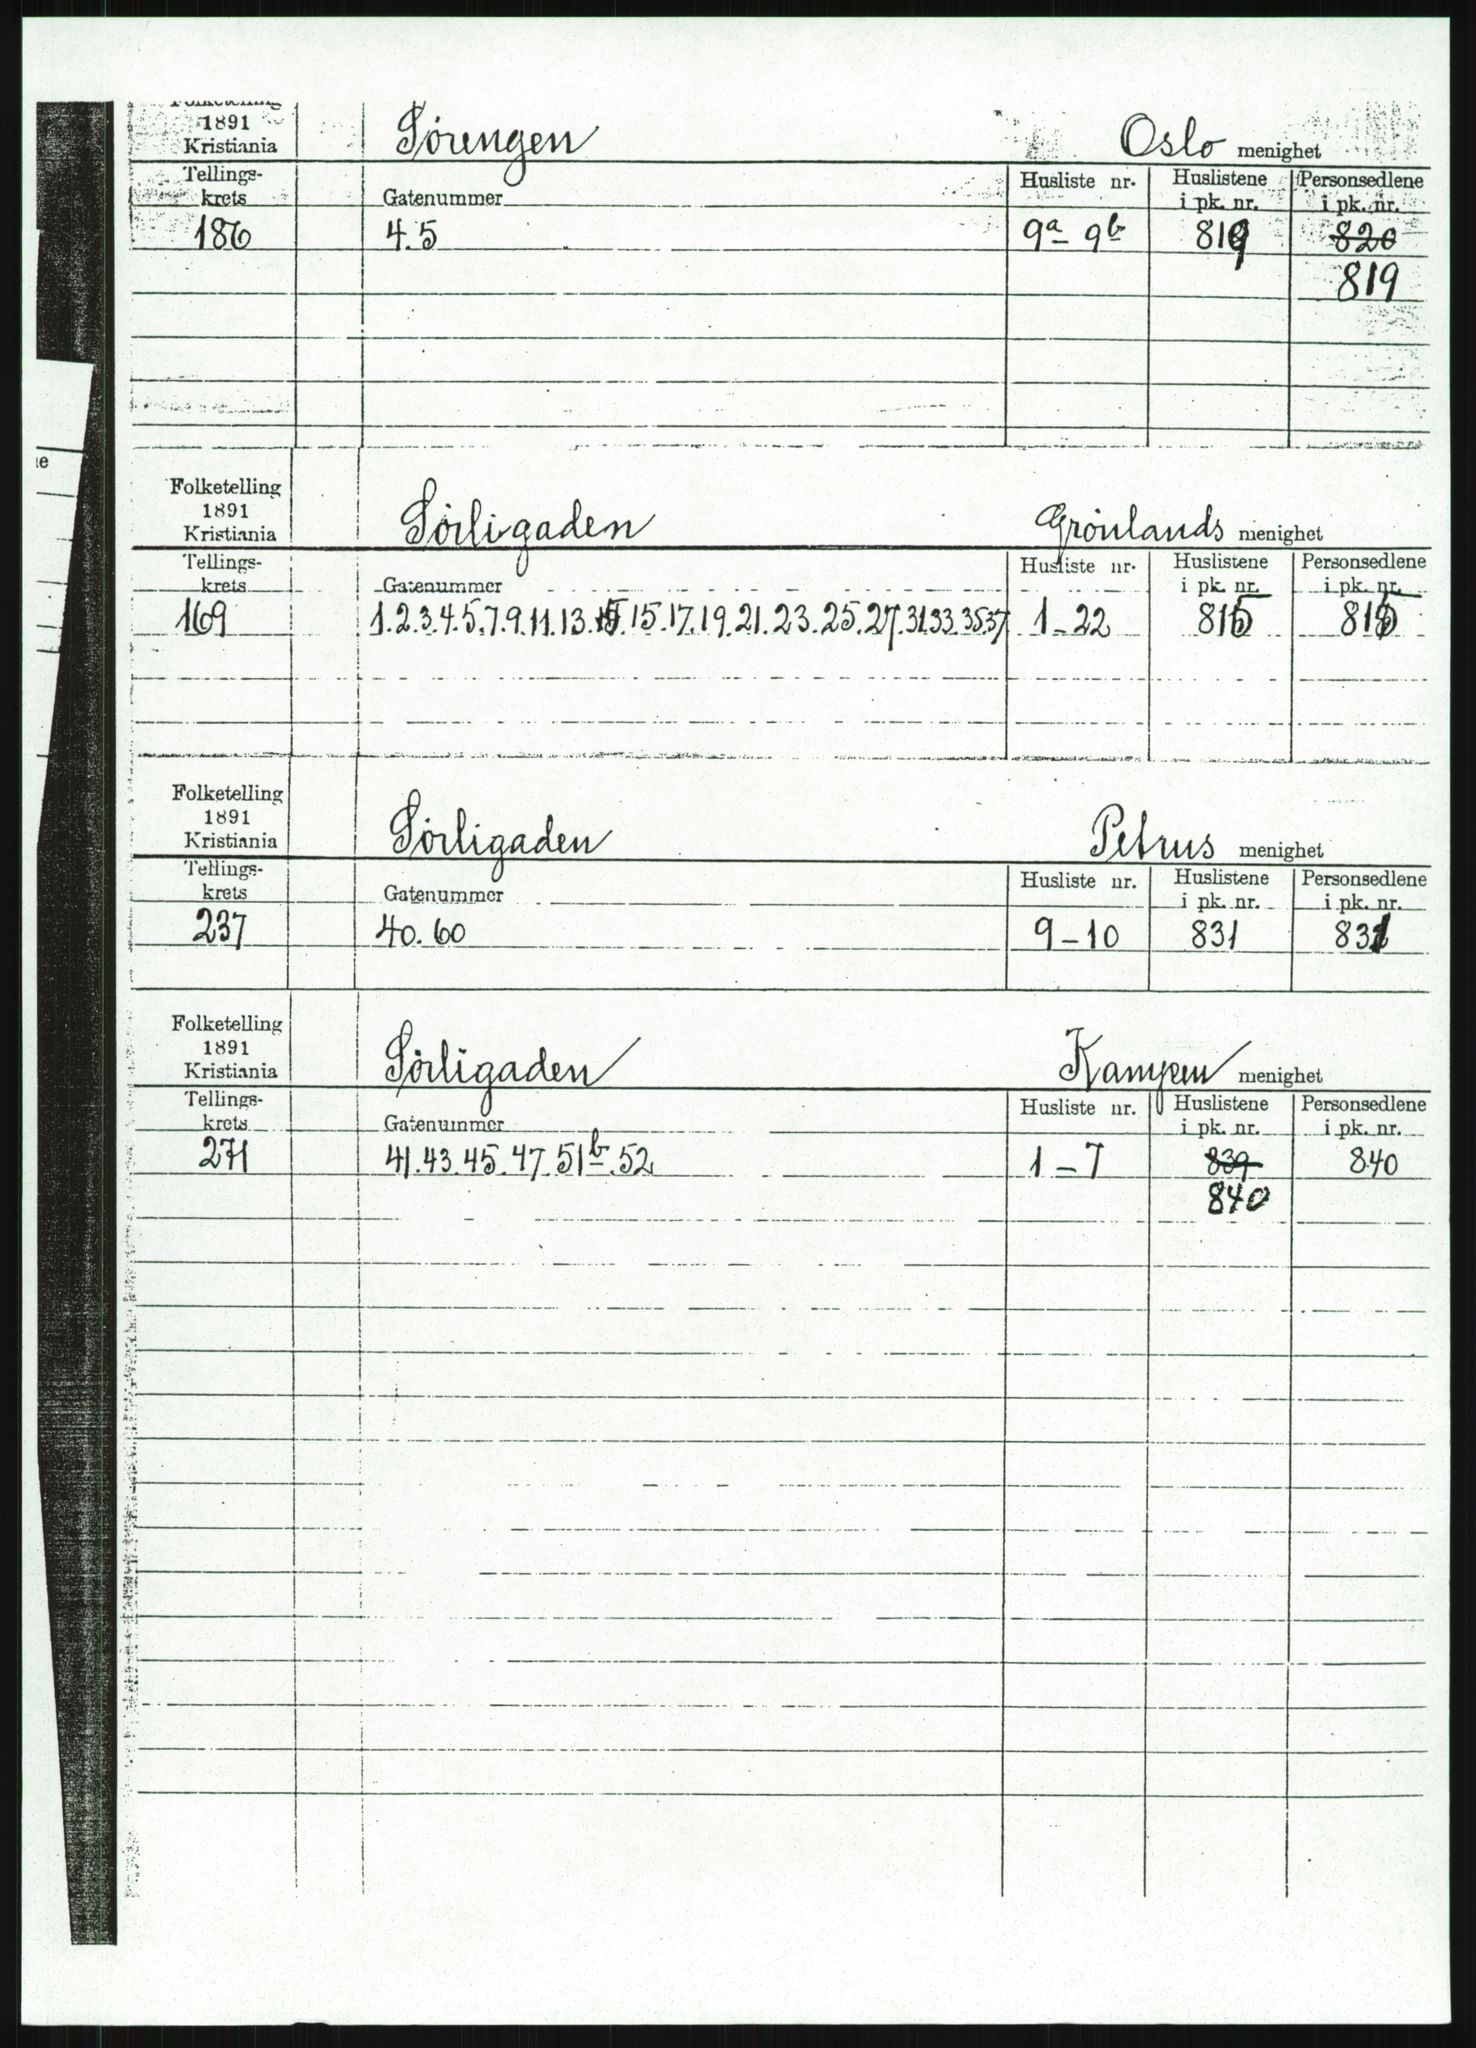 Folketelling
1891
Kristiania
Sørengen
Oslo menighet
Tellings-
krets
Gatenummer
Husliste nr.
Huslistene
i pk. nr.
Personsedlene
i pk. nr.
186
4.5
9a - 9b
819
820
819
Folketelling
1891
Kristiania
Sørligaden
Grønlands menighet
Tellings-
krets
Gatenummer
Husliste nr.
Huslistene
i pk. nr.
Personsedlene
i pk. nr.
169
1.2.3.4.5.7.9.11.13. 15.17.19.21.23.25.27.31.33.35.37
1 - 22
815
815
Folketelling
1891
Kristiania
Sørligaden
Petrus menighet
Tellings-
krets
Gatenummer
Husliste nr.
Huslistene
i pk. nr.
Personsedlene
i pk. nr.
237
40. 60
9 - 10
831
831
Folketelling
1891
Kristiania
Sørligaden
Kampen menighet
Tellings-
krets
Gatenummer
Husliste nr.
Huslistene
i pk. nr.
Personsedlene
i pk. nr.
271
41.43.45.47.51b.52
1 - 7
839
840
840